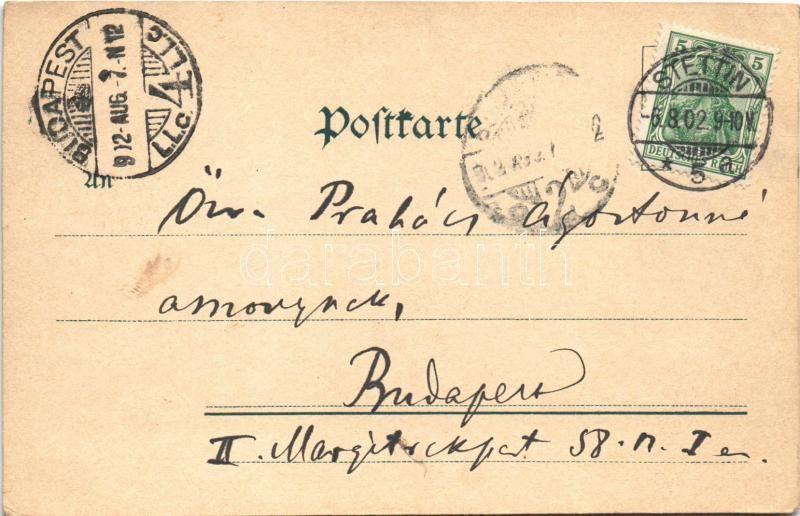 BUDAPEST
912-AUG.-7.-N 12
4
Postkarte
5 5
STETTIN
-6.8.02.9-10V
DEUTSCHES REICH
* 5 a
An
Özv. Prakács Ágostonné
asszonynak,
Budapest
II. Margitrakpart 58. n. I em.
darabanth